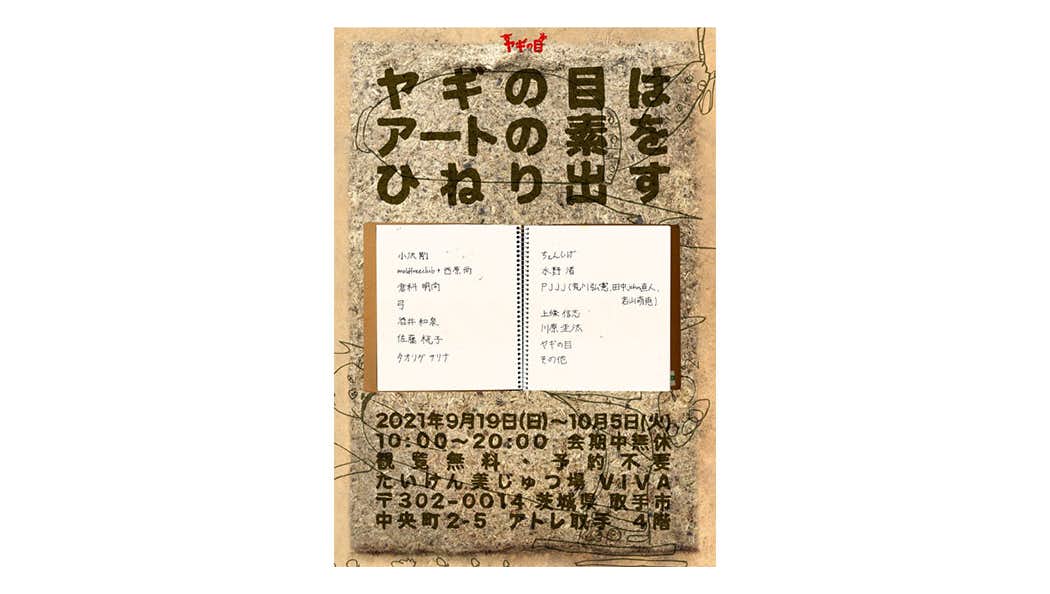 ヤギの目
ヤギの目は
アートの素を
ひねり出す
小沢 剛
moldfreeclub + 西原 尚
倉科 明尚
弓
酒井 和泉
佐藤 桃子
タオリグ サリナ
ちぇんしげ
水野 渚
PJJJ (荒川弘憲, 田中john直人,
若山萌恵)
上條 信志
川原 圭汰
ヤギの目
その他
2021年9月19日(日)～10月5日(火)
10:00～20:00 会期中無休
観覧無料、予約不要
たいけん美じゅつ場 VIVA
〒302-0014 茨城県 取手市
中央町2-5 アトレ取手 4階